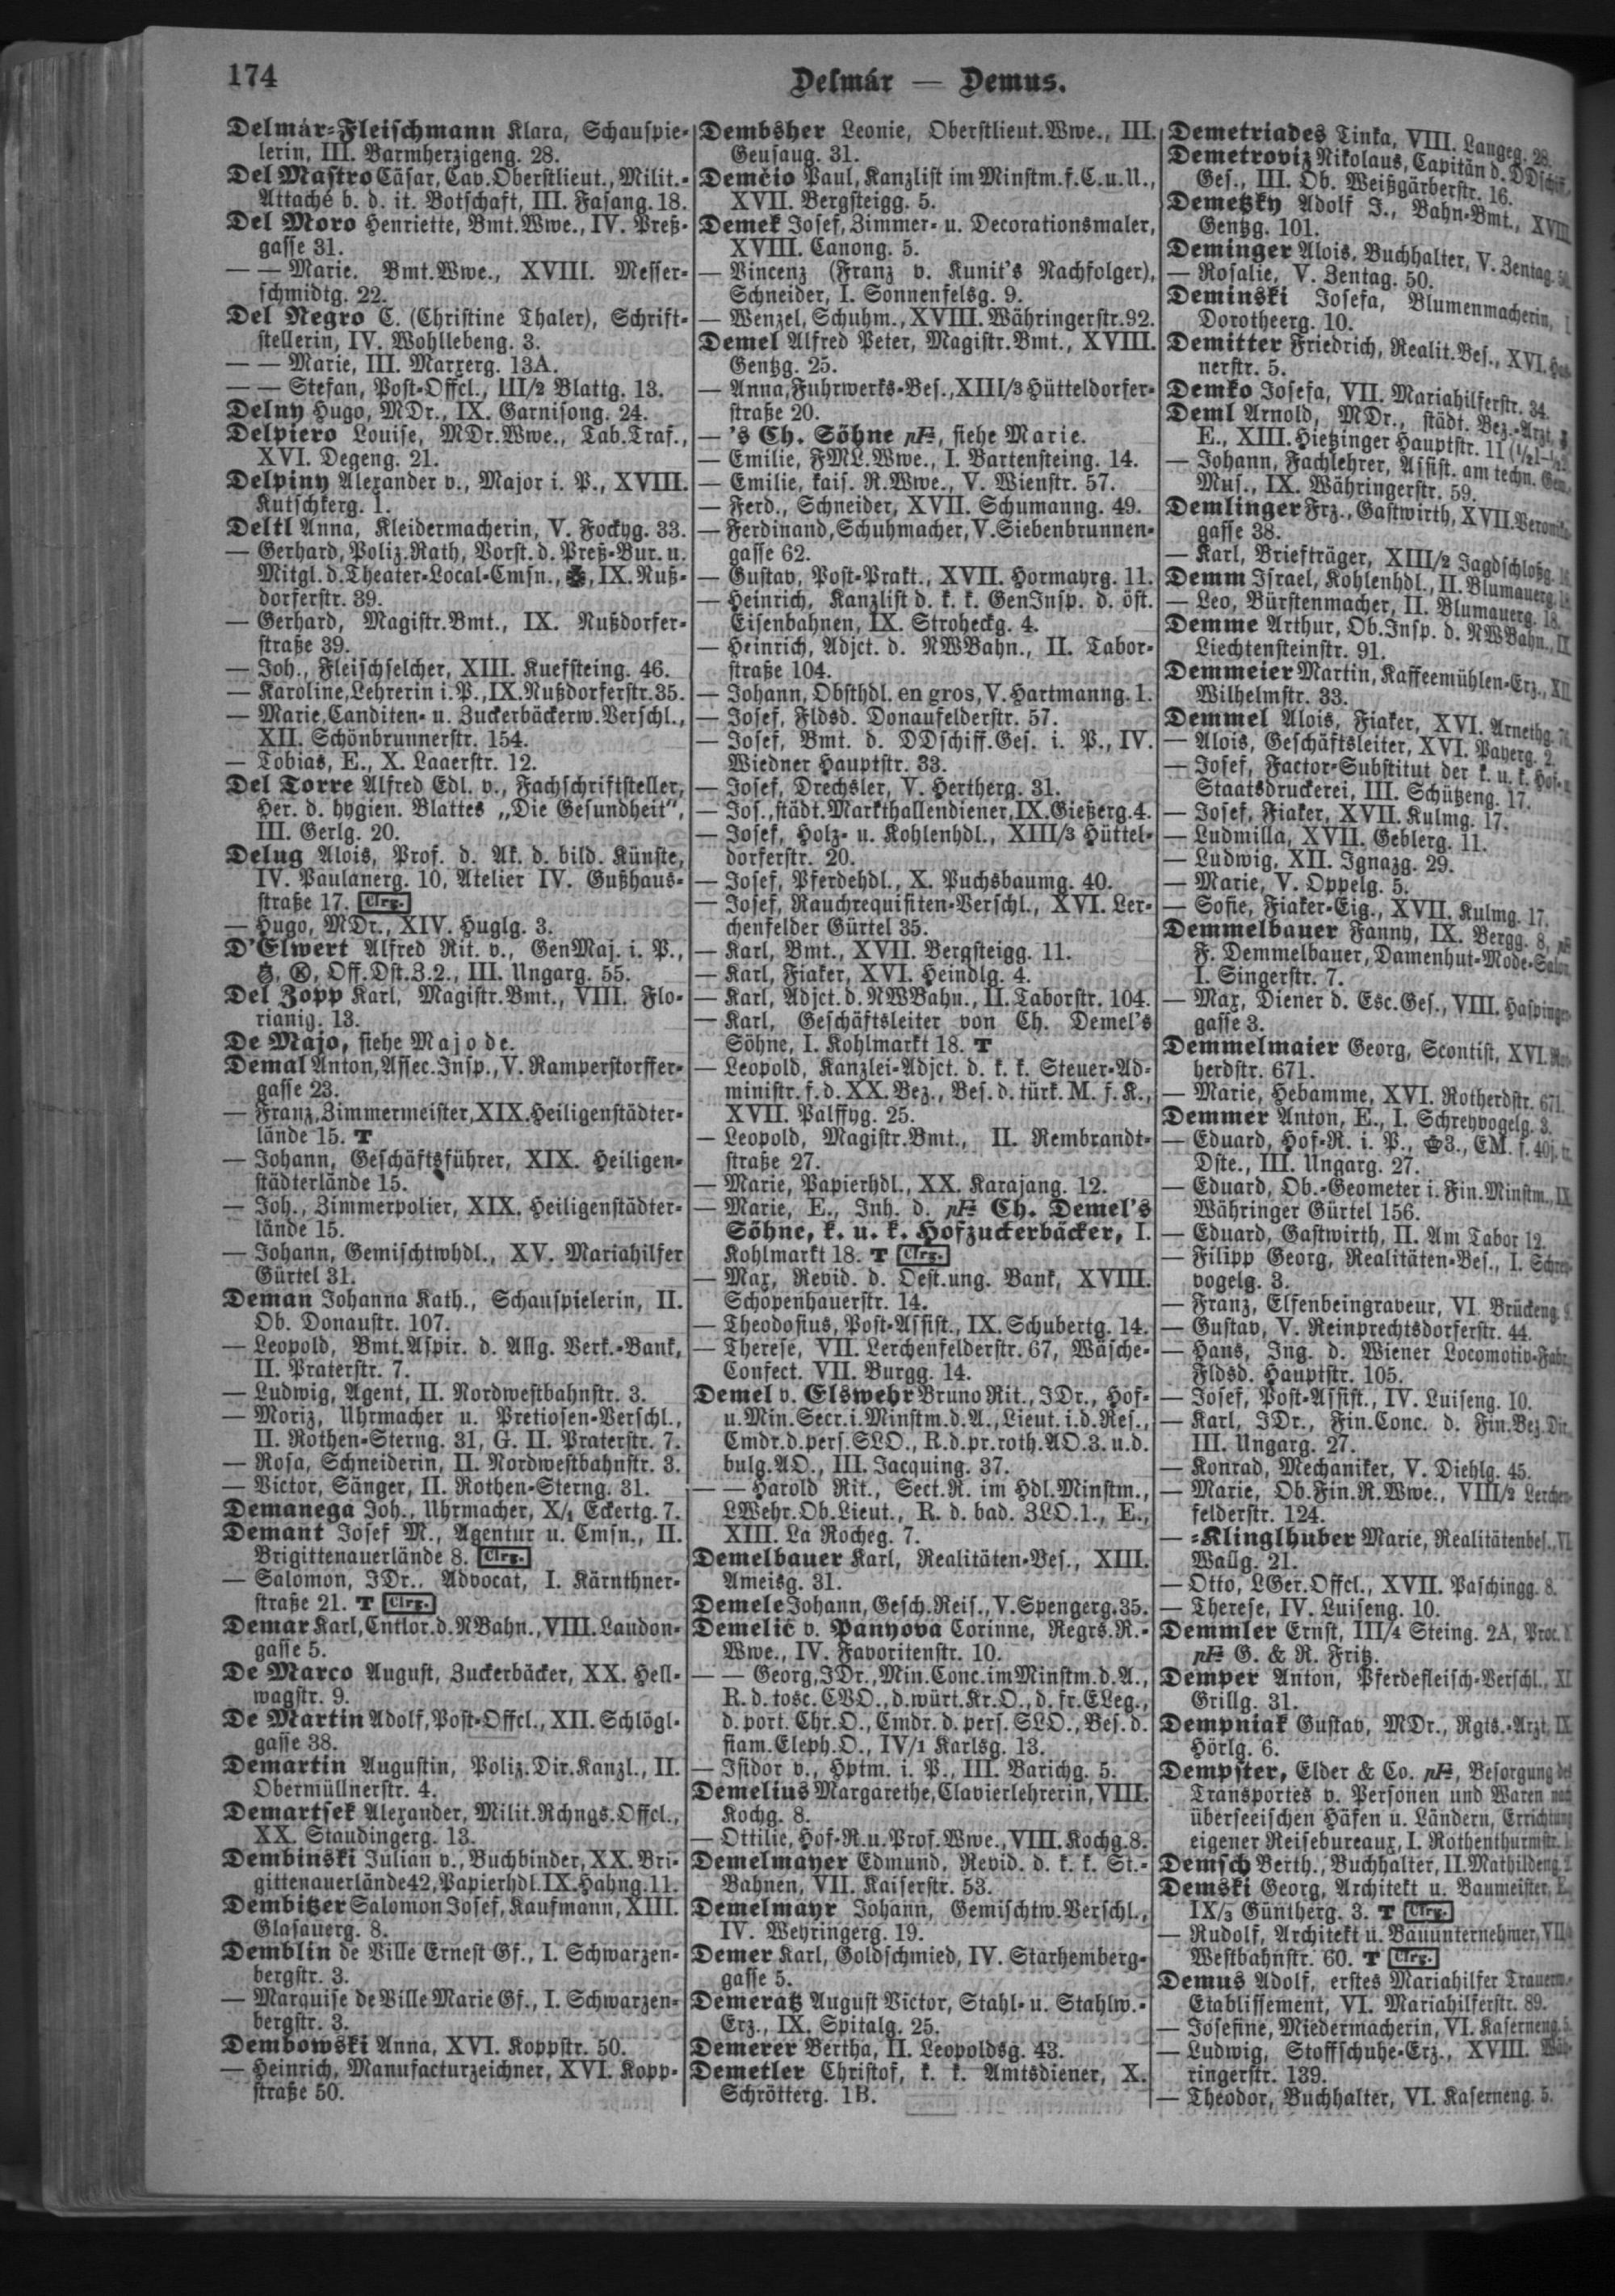 174
Delmár — Demus.
Delmár-Fleischmann Klara, Schauspie-
lerin, III. Barmherzigeng. 28.
Del Mastro Cäsar, Cav. Oberstlieut., Milit.-
Attaché b. d. it. Botschaft, III. Fasang. 18.
Del Moro Henriette, Bmt.Wwe., IV. Preß-
gasse 31.
— — Marie. Bmt.Wwe., XVIII. Messer-
schmidtg. 22.
Del Negro C. (Christine Thaler), Schrift-
stellerin, IV. Wohllebeng. 3.
— — Marie, III. Marxerg. 13A.
— — Stefan, Post-Offcl., III/2 Blattg. 13.
Delny Hugo, MDr., IX. Garnisong. 24.
Delpiero Louise, MDr.Wwe., Tab.Traf.,
XVI. Degeng. 21.
Delpiny Alexander v., Major i. P., XVIII.
Kutschkerg. 1.
Deltl Anna, Kleidermacherin, V. Fockyg. 33.
— Gerhard, Poliz.Rath, Vorst. d. Preß-Bur. u.
Mitgl. d. Theater-Local-Cmsn., IX. Nuß-
dorferstr. 39.
— Gerhard, Magistr.Bmt., IX. Nußdorfer-
straße 39.
— Joh., Fleischselcher, XIII. Kuefsteing. 46.
— Karoline, Lehrerin i. P., IX. Nußdorferstr. 35.
— Marie, Canditen- u. Zuckerbäckerw.Verschl.,
XII. Schönbrunnerstr. 154.
— Tobias, E., X. Laaerstr. 12.
Del Torre Alfred Edl. v., Fachschriftsteller,
Her. d. hygien. Blattes „Die Gesundheit“,
III. Gerlg. 20.
Delug Alois, Prof. d. Ak. d. bild. Künste,
IV. Paulanerg. 10, Atelier IV. Gußhaus-
straße 17. Clrg.
— Hugo, MDr., XIV. Huglg. 3.
D'Elwert Alfred Rit. v., GenMaj. i. P.,
Off.Dst.Z.2., III. Ungarg. 55.
Del Zopp Karl, Magistr.Bmt., VIII. Flo-
rianig. 13.
De Majo, siehe Majo de.
Demal Anton, Assec.Insp., V. Ramperstorffer-
gasse 23.
— Franz, Zimmermeister, XIX. Heiligenstädter-
lände 15. T
— Johann, Geschäftsführer, XIX. Heiligen-
städterlände 15.
— Joh., Zimmerpolier, XIX. Heiligenstädter-
lände 15.
— Johann, Gemischtwhdl., XV. Mariahilfer
Gürtel 31.
Deman Johanna Kath., Schauspielerin, II.
Ob. Donaustr. 107.
— Leopold, Bmt.Aspir. d. Allg. Verk.-Bank,
II. Praterstr. 7.
— Ludwig, Agent, II. Nordwestbahnstr. 3.
— Moriz, Uhrmacher u. Pretiosen-Verschl.,
II. Rothen-Sterng. 31, G. II. Praterstr. 7.
— Rosa, Schneiderin, II. Nordwestbahnstr. 3.
— Victor, Sänger, II. Rothen-Sterng. 31.
Demanega Joh., Uhrmacher, X/1 Eckertg. 7.
Demant Josef M., Agentur u. Cmsn., II.
Brigittenauerlände 8. Clrg.
— Salomon, JDr., Advocat, I. Kärnthner-
straße 21. T Clrg.
Demar Karl, Cntlor. d. NBahn., VIII. Laudon-
gasse 5.
De Marco August, Zuckerbäcker, XX. Hell-
wagstr. 9.
De Martin Adolf, Post-Offcl., XII. Schlögl-
gasse 38.
Demartin Augustin, Poliz.Dir.Kanzl., II.
Obermüllnerstr. 4.
Demartsek Alexander, Milit.Rchngs.Offcl.,
XX. Staudingerg. 13.
Dembinski Julian v., Buchbinder, XX. Bri-
gittenauerlände 42, Papierhdl. IX. Hahng. 11.
Dembitzer Salomon Josef, Kaufmann, XIII.
Glasauerg. 8.
Demblin de Ville Ernest Gf., I. Schwarzen-
bergstr. 3.
— Marquise de Ville Marie Gf., I. Schwarzen-
bergstr. 3.
Dembowski Anna, XVI. Koppstr. 50.
— Heinrich, Manufacturzeichner, XVI. Kopp-
straße 50.
Dembsher Leonie, Oberstlieut.Wwe., III.
Geusaug. 31.
Demčio Paul, Kanzlist im Minstm. f. C. u. U.,
XVII. Bergsteigg. 5.
Demek Josef, Zimmer- u. Decorationsmaler,
XVIII. Canong. 5.
— Vincenz (Franz v. Kunit's Nachfolger),
Schneider, I. Sonnenfelsg. 9.
— Wenzel, Schuhm., XVIII. Währingerstr. 92.
Demel Alfred Peter, Magistr.Bmt., XVIII.
Gentzg. 25.
— Anna, Fuhrwerks-Bes., XIII/3 Hütteldorfer-
straße 20.
— 's Ch. Söhne pF, siehe Marie.
— Emilie, FML.Wwe., I. Bartensteing. 14.
— Emilie, kais. R.Wwe., V. Wienstr. 57.
— Ferd., Schneider, XVII. Schumanng. 49.
— Ferdinand, Schuhmacher, V. Siebenbrunnen-
gasse 62.
— Gustav, Post-Prakt., XVII. Hormayrg. 11.
— Heinrich, Kanzlist d. k. k. GenInsp. d. öst.
Eisenbahnen, IX. Stroheckg. 4.
— Heinrich, Adjct. d. NWBahn., II. Tabor-
straße 104.
— Johann, Obsthdl. en gros, V. Hartmanng. 1.
— Josef, Fldsd. Donaufelderstr. 57.
— Josef, Bmt. d. DDschiff.Ges. i. P., IV.
Wiedner Hauptstr. 33.
— Josef, Drechsler, V. Hertherg. 31.
— Jos., städt. Markthallendiener, IX. Gießerg. 4.
— Josef, Holz- u. Kohlenhdl., XIII/3 Hüttel-
dorferstr. 20.
— Josef, Pferdehdl., X. Puchsbaumg. 40.
— Josef, Rauchrequisiten-Verschl., XVI. Ler-
chenfelder Gürtel 35.
— Karl, Bmt., XVII. Bergsteigg. 11.
— Karl, Fiaker, XVI. Heindlg. 4.
— Karl, Adjct. d. NWBahn., II. Taborstr. 104.
— Karl, Geschäftsleiter von Ch. Demel's
Söhne, I. Kohlmarkt 18. T
— Leopold, Kanzlei-Adjct. d. k. k. Steuer-Ad-
ministr. f. d. XX. Bez., Bes. d. türk. M. f. K.,
XVII. Palffyg. 25.
— Leopold, Magistr.Bmt., II. Rembrandt-
straße 27.
— Marie, Papierhdl., XX. Karajang. 12.
— Marie, E., Inh. d. pF Ch. Demel's
Söhne, k. u. k. Hofzuckerbäcker, I.
Kohlmarkt 18. T Clrg.
— Max, Revid. d. Oest.ung. Bank, XVIII.
Schopenhauerstr. 14.
— Theodosius, Post-Assist., IX. Schubertg. 14.
— Therese, VII. Lerchenfelderstr. 67, Wäsche-
Confect. VII. Burgg. 14.
Demel v. Elswehr Bruno Rit., JDr., Hof-
u. Min.Secr. i. Minstm. d. A., Lieut. i. d. Res.,
Cmdr. d. pers. SLO., R. d. pr. roth. AO. 3. u. d.
bulg. AO., III. Jacquing. 37.
— — Harold Rit., Sect.R. im Hdl.Minstm.,
LWehr.Ob.Lieut., R. d. bad. ZLO.1., E.,
XIII. La Rocheg. 7.
Demelbauer Karl, Realitäten-Bes., XIII.
Ameisg. 31.
Demele Johann, Gesch.Reis., V. Spengerg. 35.
Demelič v. Panyova Corinne, Regrs.R.-
Wwe., IV. Favoritenstr. 10.
— — Georg, JDr., Min.Conc. im Minstm. d. A.,
R. d. tosc. CVO., d. würt. Kr.O., d. fr. ELeg.,
d. port. Chr.O., Cmdr. d. pers. SLO., Bes. d.
siam. Eleph.O., IV/1 Karlsg. 13.
— Isidor v., Hptm. i. P., III. Barichg. 5.
Demelius Margarethe, Clavierlehrerin, VIII.
Kochg. 8.
— Ottilie, Hof-R. u. Prof. Wwe., VIII. Kochg. 8.
Demelmayer Edmund, Revid. d. k. k. St.-
Bahnen, VII. Kaiserstr. 53.
Demelmayr Johann, Gemischtw.Verschl.,
IV. Weyringerg. 19.
Demer Karl, Goldschmied, IV. Starhemberg-
gasse 5.
Demeratz August Victor, Stahl- u. Stahlw.-
Erz., IX. Spitalg. 25.
Demerer Bertha, II. Leopoldsg. 43.
Demetler Christof, k. k. Amtsdiener, X.
Schrötterg. 1B.
Demetriades Tinka, VIII. Langeg. 28.
Demetroviz Nikolaus, Capitän d. DDschiff.
Ges., III. Ob. Weißgärberstr. 16.
Demetzky Adolf J., Bahn-Bmt., XVIII
Gentzg. 101.
Deminger Alois, Buchhalter, V. Zentag. 50.
— Rosalie, V. Zentag. 50.
Deminski Josefa, Blumenmacherin, I
Dorotheerg. 10.
Demitter Friedrich, Realit.Bes., XVI.
nerstr. 5.
Demko Josefa, VII. Mariahilferstr. 34.
Deml Arnold, MDr., städt. Bez.-Arzt,
E., XIII. Hietzinger Hauptstr. 11
— Johann, Fachlehrer, Assist. am techn. Gew.
Mus., IX. Währingerstr. 59.
Demlinger Frz., Gastwirth, XVII. Veronika-
gasse 38.
— Karl, Briefträger, XIII/2 Jagdschloßg.
Demm Israel, Kohlenhdl., II. Blumauerg. 18
— Leo, Bürstenmacher, II. Blumauerg. 18.
Demme Arthur, Ob.Insp. d. NWBahn., IX
Liechtensteinstr. 91.
Demmeier Martin, Kaffeemühlen-Erz., XII
Wilhelmstr. 33.
Demmel Alois, Fiaker, XVI. Arnethg.
— Alois, Geschäftsleiter, XVI. Payerg. 2.
— Josef, Factor-Substitut der k. u. k. Hof- u.
Staatsdruckerei, III. Schützeng. 17.
— Josef, Fiaker, XVII. Kulmg. 17.
— Ludmilla, XVII. Geblerg. 11.
— Ludwig, XII. Ignazg. 29.
— Marie, V. Oppelg. 5.
— Sofie, Fiaker-Eig., XVII. Kulmg. 17.
Demmelbauer Fanny, IX. Bergg. 8, pF
F. Demmelbauer, Damenhut-Mode-Salon,
I. Singerstr. 7.
— Max, Diener d. Esc.Ges., VIII. Haspinger-
gasse 3.
Demmelmaier Georg, Scontist, XVI. Rot-
herdstr. 671.
— Marie, Hebamme, XVI. Rotherdstr. 671.
Demmer Anton, E., I. Schreyvogelg. 3.
— Eduard, Hof-R. i. P., 3., EM. f. 40j. tr.
Dste., III. Ungarg. 27.
— Eduard, Ob.-Geometer i. Fin.Minstm., IX
Währinger Gürtel 156.
— Eduard, Gastwirth, II. Am Tabor 12.
— Filipp Georg, Realitäten-Bes., I. Schrey-
vogelg. 3.
— Franz, Elfenbeingraveur, VI. Brückeng. 9.
— Gustav, V. Reinprechtsdorferstr. 44.
— Hans, Ing. d. Wiener Locomotiv-Fabr.,
Fldsd. Hauptstr. 105.
— Josef, Post-Assist., IV. Luiseng. 10.
— Karl, JDr., Fin.Conc. d. Fin.Bez.Dir.
III. Ungarg. 27.
— Konrad, Mechaniker, V. Diehlg. 45.
— Marie, Ob.Fin.R.Wwe., VIII/2 Lerchen-
felderstr. 124.
— -Klinglhuber Marie, Realitätenbes., VI
Wallg. 21.
— Otto, LGer.Offcl., XVII. Paschingg. 8.
— Therese, IV. Luiseng. 10.
Demmler Ernst, III/4 Steing. 2A, Proc.
pF G. & R. Fritz.
Demper Anton, Pferdefleisch-Verschl., XI
Grillg. 31.
Dempniak Gustav, MDr., Rgts.-Arzt, IX
Hörlg. 6.
Dempster, Elder & Co. pF, Besorgung des
Transportes v. Personen und Waren nach
überseeischen Häfen u. Ländern, Errichtung
eigener Reisebureaux, I. Rothenthurmstr.
Demsch Berth., Buchhalter, II. Mathildeng.
Demski Georg, Architekt u. Baumeister, E.,
IX/3 Güntherg. 3. T Clrg.
— Rudolf, Architekt u. Bauunternehmer, VII
Westbahnstr. 60. T Clrg.
Demus Adolf, erstes Mariahilfer Trauerw.-
Etablissement, VI. Mariahilferstr. 89.
— Josefine, Miedermacherin, VI. Kaserneng. 5.
— Ludwig, Stoffschuhe-Erz., XVIII. Wäh-
ringerstr. 139.
— Theodor, Buchhalter, VI. Kaserneng. 5.